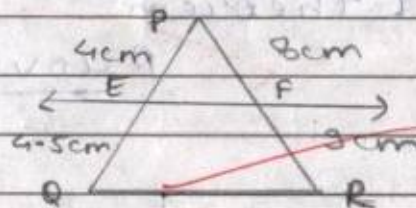 P
4cm 8cm
E F
4.5cm 9cm
Q R